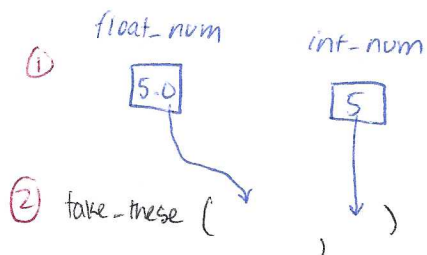 float_num int_num
① 5.0 5
② take_these ( , )